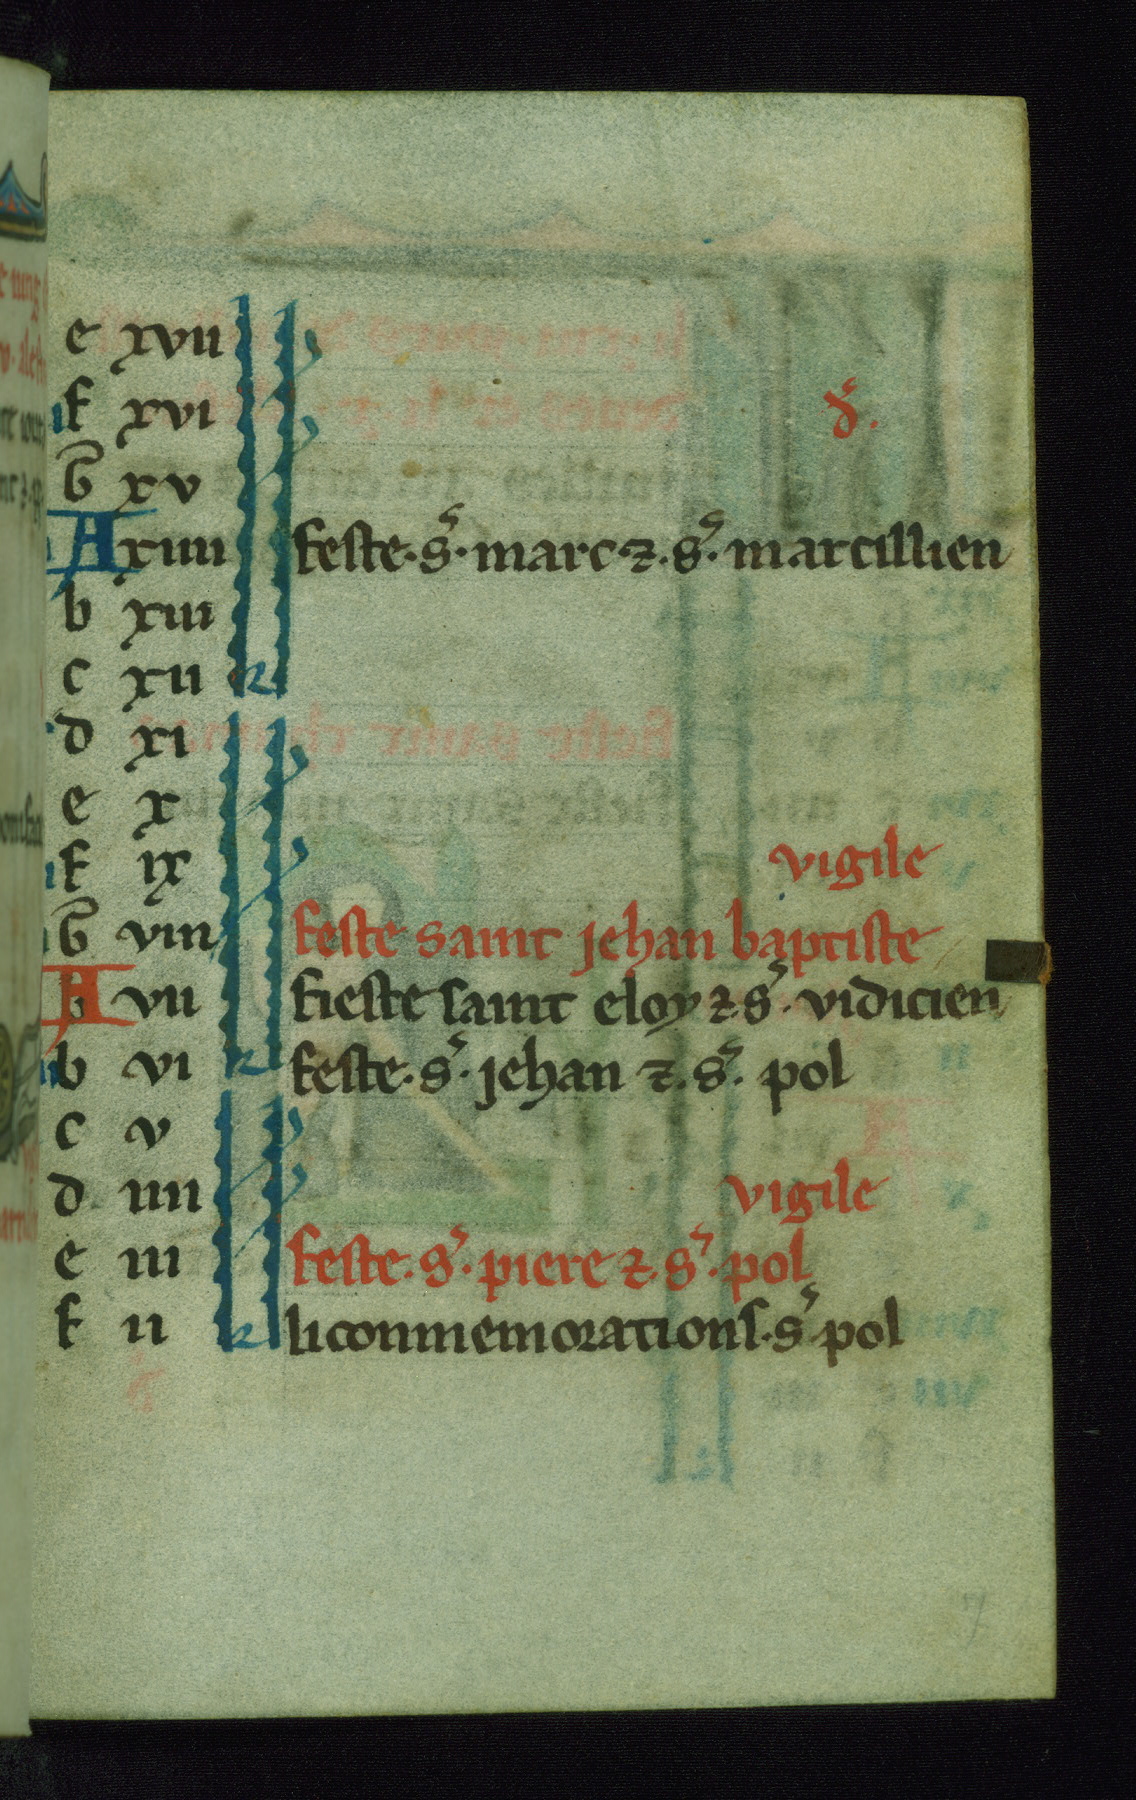 e xvii
f xvi d̕.
G xv
A xiiii feste. s̕. marc. ⁊. s̕. marcillien
b xiii
c xii kl
d xi
e x
f ix vigile
G viii feste saint jehan baptiste
A vii fieste saint eloy ⁊ s̕. vidicien
b vi kl feste. s̕. jehan ⁊. s̕. pol
c v
d iiii vigile
e iii feste. s̕. piere ⁊. s̕. pol
f ii kl li conmemorations. s̕. pol
7